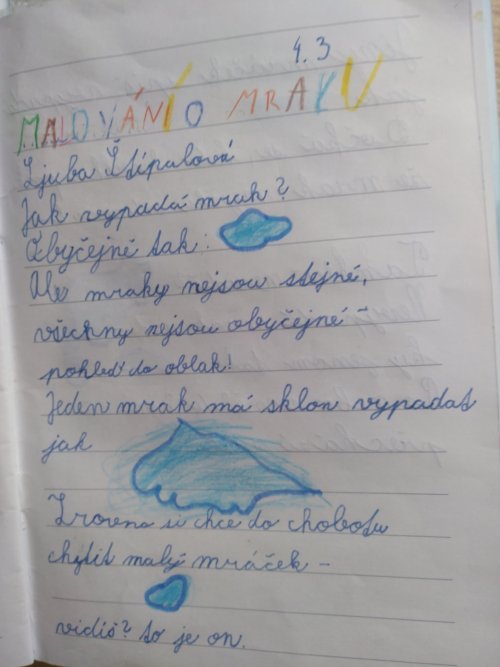 4.3
MALOVÁNÍ O MRAKU
Ljuba Štípalová
Jak vypadá mrak?
Obyčejně tak:
Ale mraky nejsou stejné,
všechny nejsou obyčejné -
pohleď do oblak!
Jeden mrak má sklon vypadat
jak
Zrovna si chce do chobotu
chytit malý mráček -
vidíš? to je on.